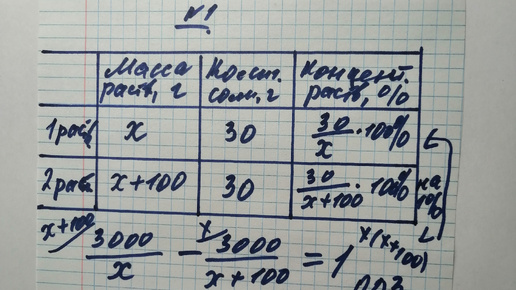 №1
Масса раств, г Колич. соли, г Концент. раств, %
1 раств x 30 30/x · 100%
2 раств x+100 30 30/(x+100) · 100% на 1%
x+100 3000/x - x 3000/(x+100) = 1 x(x+100)
ОДЗ